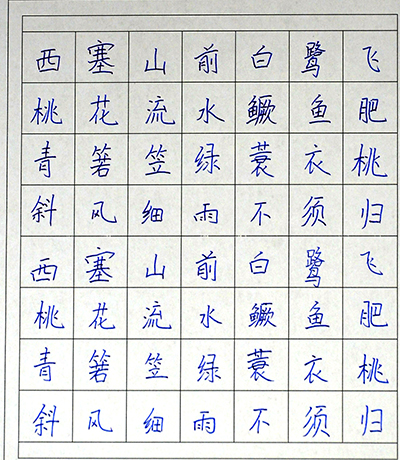 西塞山前白鹭飞
桃花流水鳜鱼肥
青箬笠绿蓑衣桃
斜风细雨不须归
西塞山前白鹭飞
桃花流水鳜鱼肥
青箬笠绿蓑衣桃
斜风细雨不须归